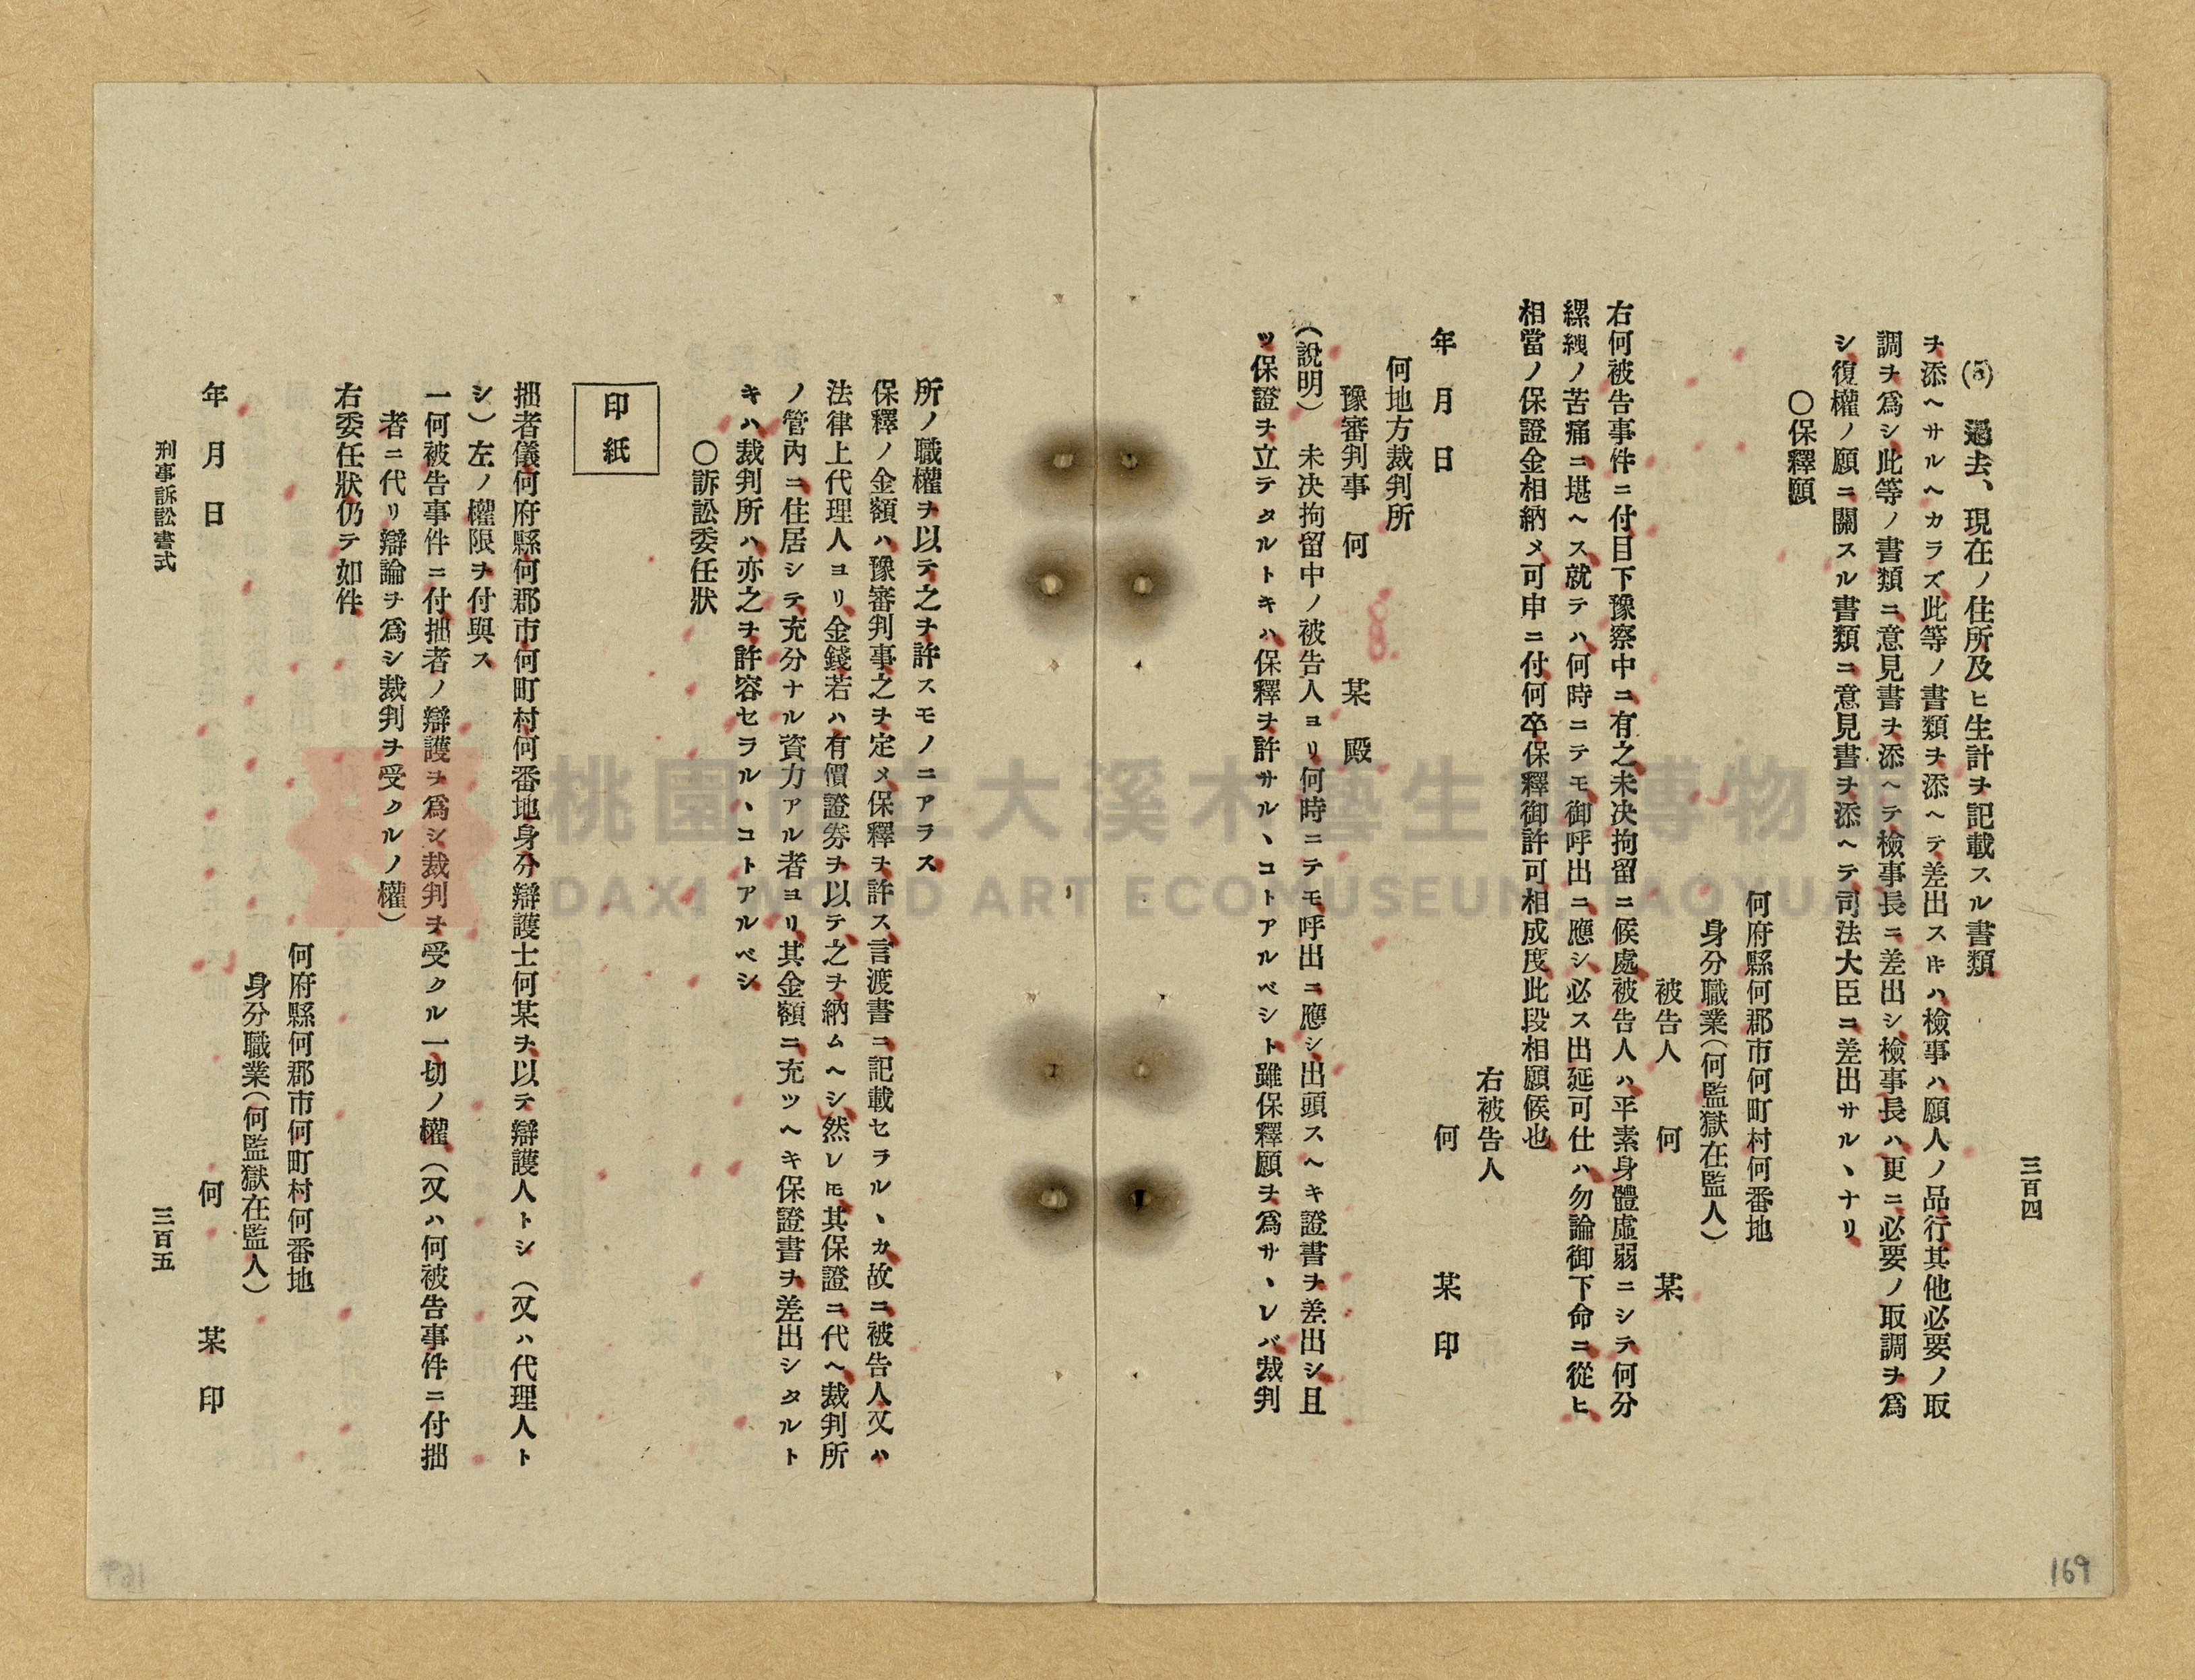 三百四
(5) 過去、現在ノ住所及ヒ生計ヲ記載スル書類
ヲ添ヘサルヘカラズ此等ノ書類ヲ添ヘテ差出スㇳキハ檢事ハ願人ノ品行其他必要ノ取
調ヲ爲シ此等ノ書類ニ意見書ヲ添ヘテ檢事長ニ差出シ檢事長ハ更ニ必要ノ取調ヲ爲
シ復權ノ願ニ關スル書類ニ意見書ヲ添ヘテ司法大臣ニ差出サルヽナリ
〇保釋願
何府縣何郡市何町村何番地
身分職業(何監獄在監人)
被告人 何 某
右何被告事件ニ付目下豫察中ニ有之未决拘留ニ候處被告人ハ平素身體虛弱ニシテ何分
縲絏ノ苦痛ニ堪ヘス就テハ何時ニテモ御呼出ニ應シ必ス出延可仕ハ勿論御下命ニ從ヒ
相當ノ保證金相納メ可申ニ付何卒保釋御許可相成度此段相願候也
右被告人
年 月 日 何 某 印
何地方裁判所
豫審判事 何 某 殿
(說明) 未决拘留中ノ被告人ヨリ何時ニテモ呼出ニ應シ出頭スヘキ證書ヲ差出シ且
ツ保證ヲ立テタルトキハ保釋ヲ許サルヽコトアルベシト雖保釋願ヲ爲サヽレバ裁判
所ノ職權ヲ以テ之ヲ許スモノニアラス
保釋ノ金額ハ豫審判事之ヲ定メ保釋ヲ許ス言渡書ニ記載セラルヽカ故ニ被告人又ハ
法律上代理人ヨリ金錢若ハ有價證券ヲ以テ之ヲ納ムヘシ然レㇳモ其保證ニ代ヘ裁判所
ノ管內ニ住居シテ充分ナル資力アル者ヨリ其金額ニ充ツヘキ保證書ヲ差出シタルト
キハ裁判所ハ亦之ヲ許容セラルヽコトアルベシ
〇訴訟委任狀
印紙
拙者儀何府縣何郡市何町村何番地身分辯護士何某ヲ以テ辯護人トシ(又ハ代理人ト
シ)左ノ權限ヲ付與ス
一何被告事件ニ付拙者ノ辯護ヲ爲シ裁判ヲ受クル一切ノ權(又ハ何被告事件ニ付拙
者ニ代リ辯論ヲ爲シ裁判ヲ受クルノ權)
右委任狀仍テ如件
何府縣何郡市何町村何番地
身分職業(何監獄在監人)
年 月 日 何 某 印
刑事訴訟書式
三百五
169
桃園市立大溪木藝生態博物館
DAXI WOOD ART ECOMUSEUM, TAOYUAN